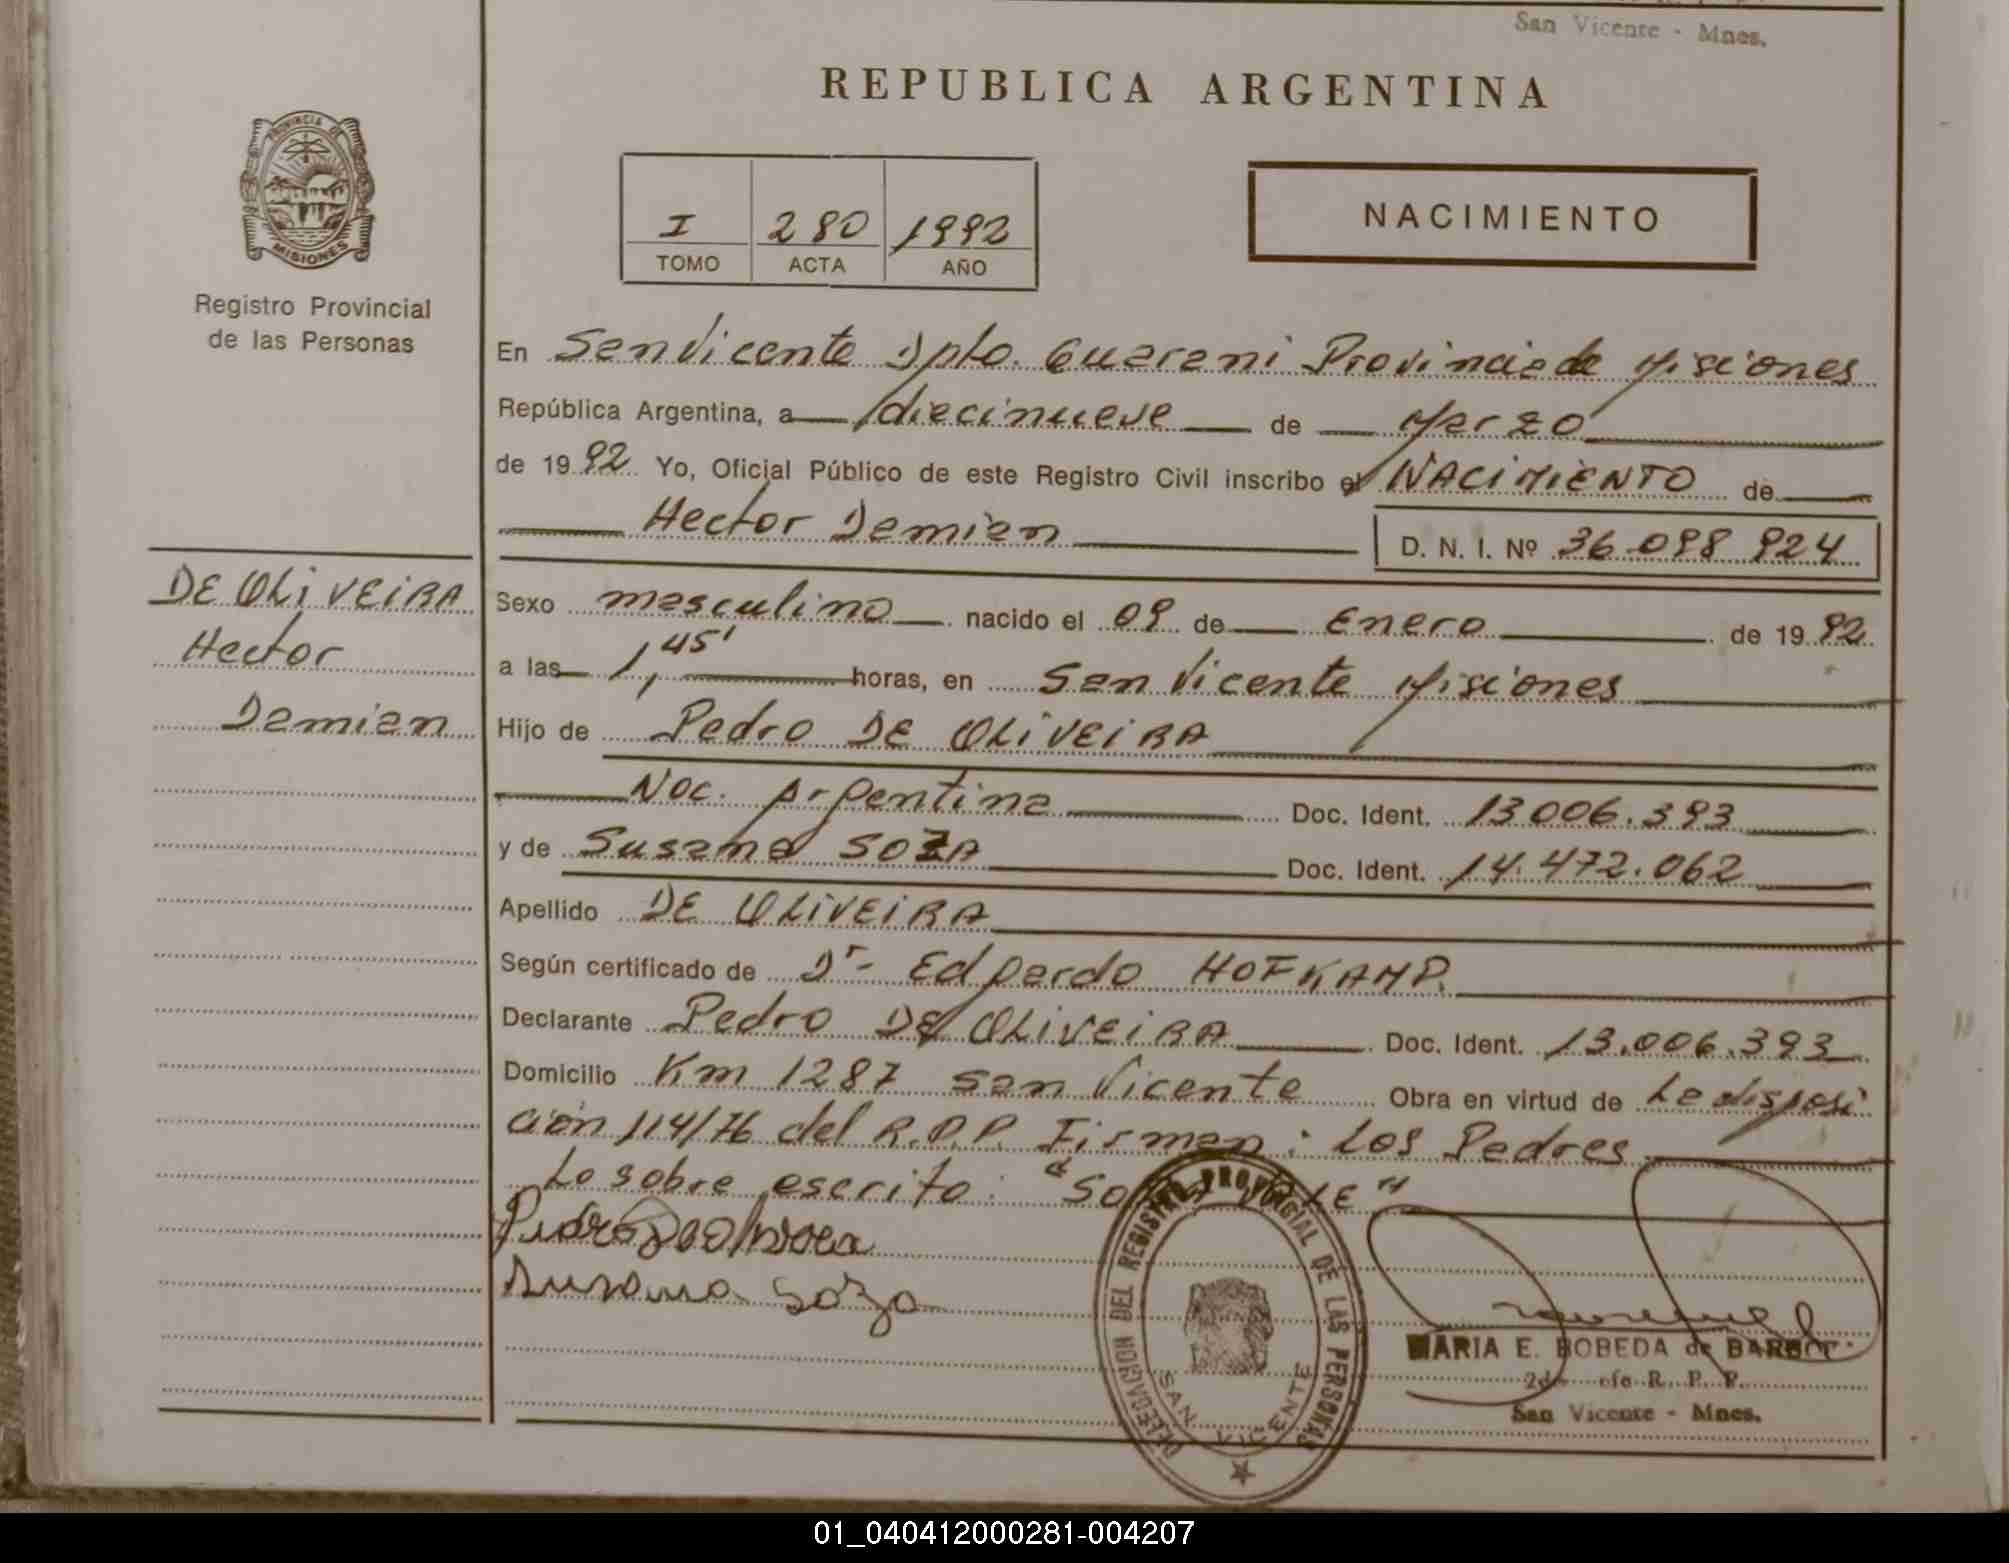 San Vicente - Mnes.
REPUBLICA ARGENTINA
PROVINCIA DE
MISIONES
Registro Provincial
de las Personas
I 280 1992
TOMO ACTA AÑO
NACIMIENTO
En San Vicente Dpto. Guarani Provincia de Misiones
República Argentina, a diecinueve de Marzo
de 1992 Yo, Oficial Público de este Registro Civil inscribo el NACIMIENTO de
Hector Demian D. N. I. Nº 36.098 924
DE OLiVEiRA
Hector
Demian
Sexo masculino nacido el 09 de Enero de 1992
a las 1,45' horas, en San Vicente Misiones
Hijo de Pedro DE OLiVEiRA
Nac. Argentina Doc. Ident. 13.006.393
y de Susana SOZA Doc. Ident. 14.472.062
Apellido DE OLiVEiRA
Según certificado de Dr- Edgardo HOFKAMP.
Declarante Pedro DE OLiVEiRA Doc. Ident. 13.006.393
Domicilio Km 1287 San Vicente Obra en virtud de La disposi
ción 114/76 del R.P.P. Firman: Los Padres
Lo sobre escrito: "SOZA VALE"
Susana Soza
DELEGACION DEL REGISTRO PROVINCIAL DE LAS PERSONAS
SAN VICENTE
MARIA E. BOBEDA de
R. P. P.
San Vicente - Mnes.
01_040412000281-004207